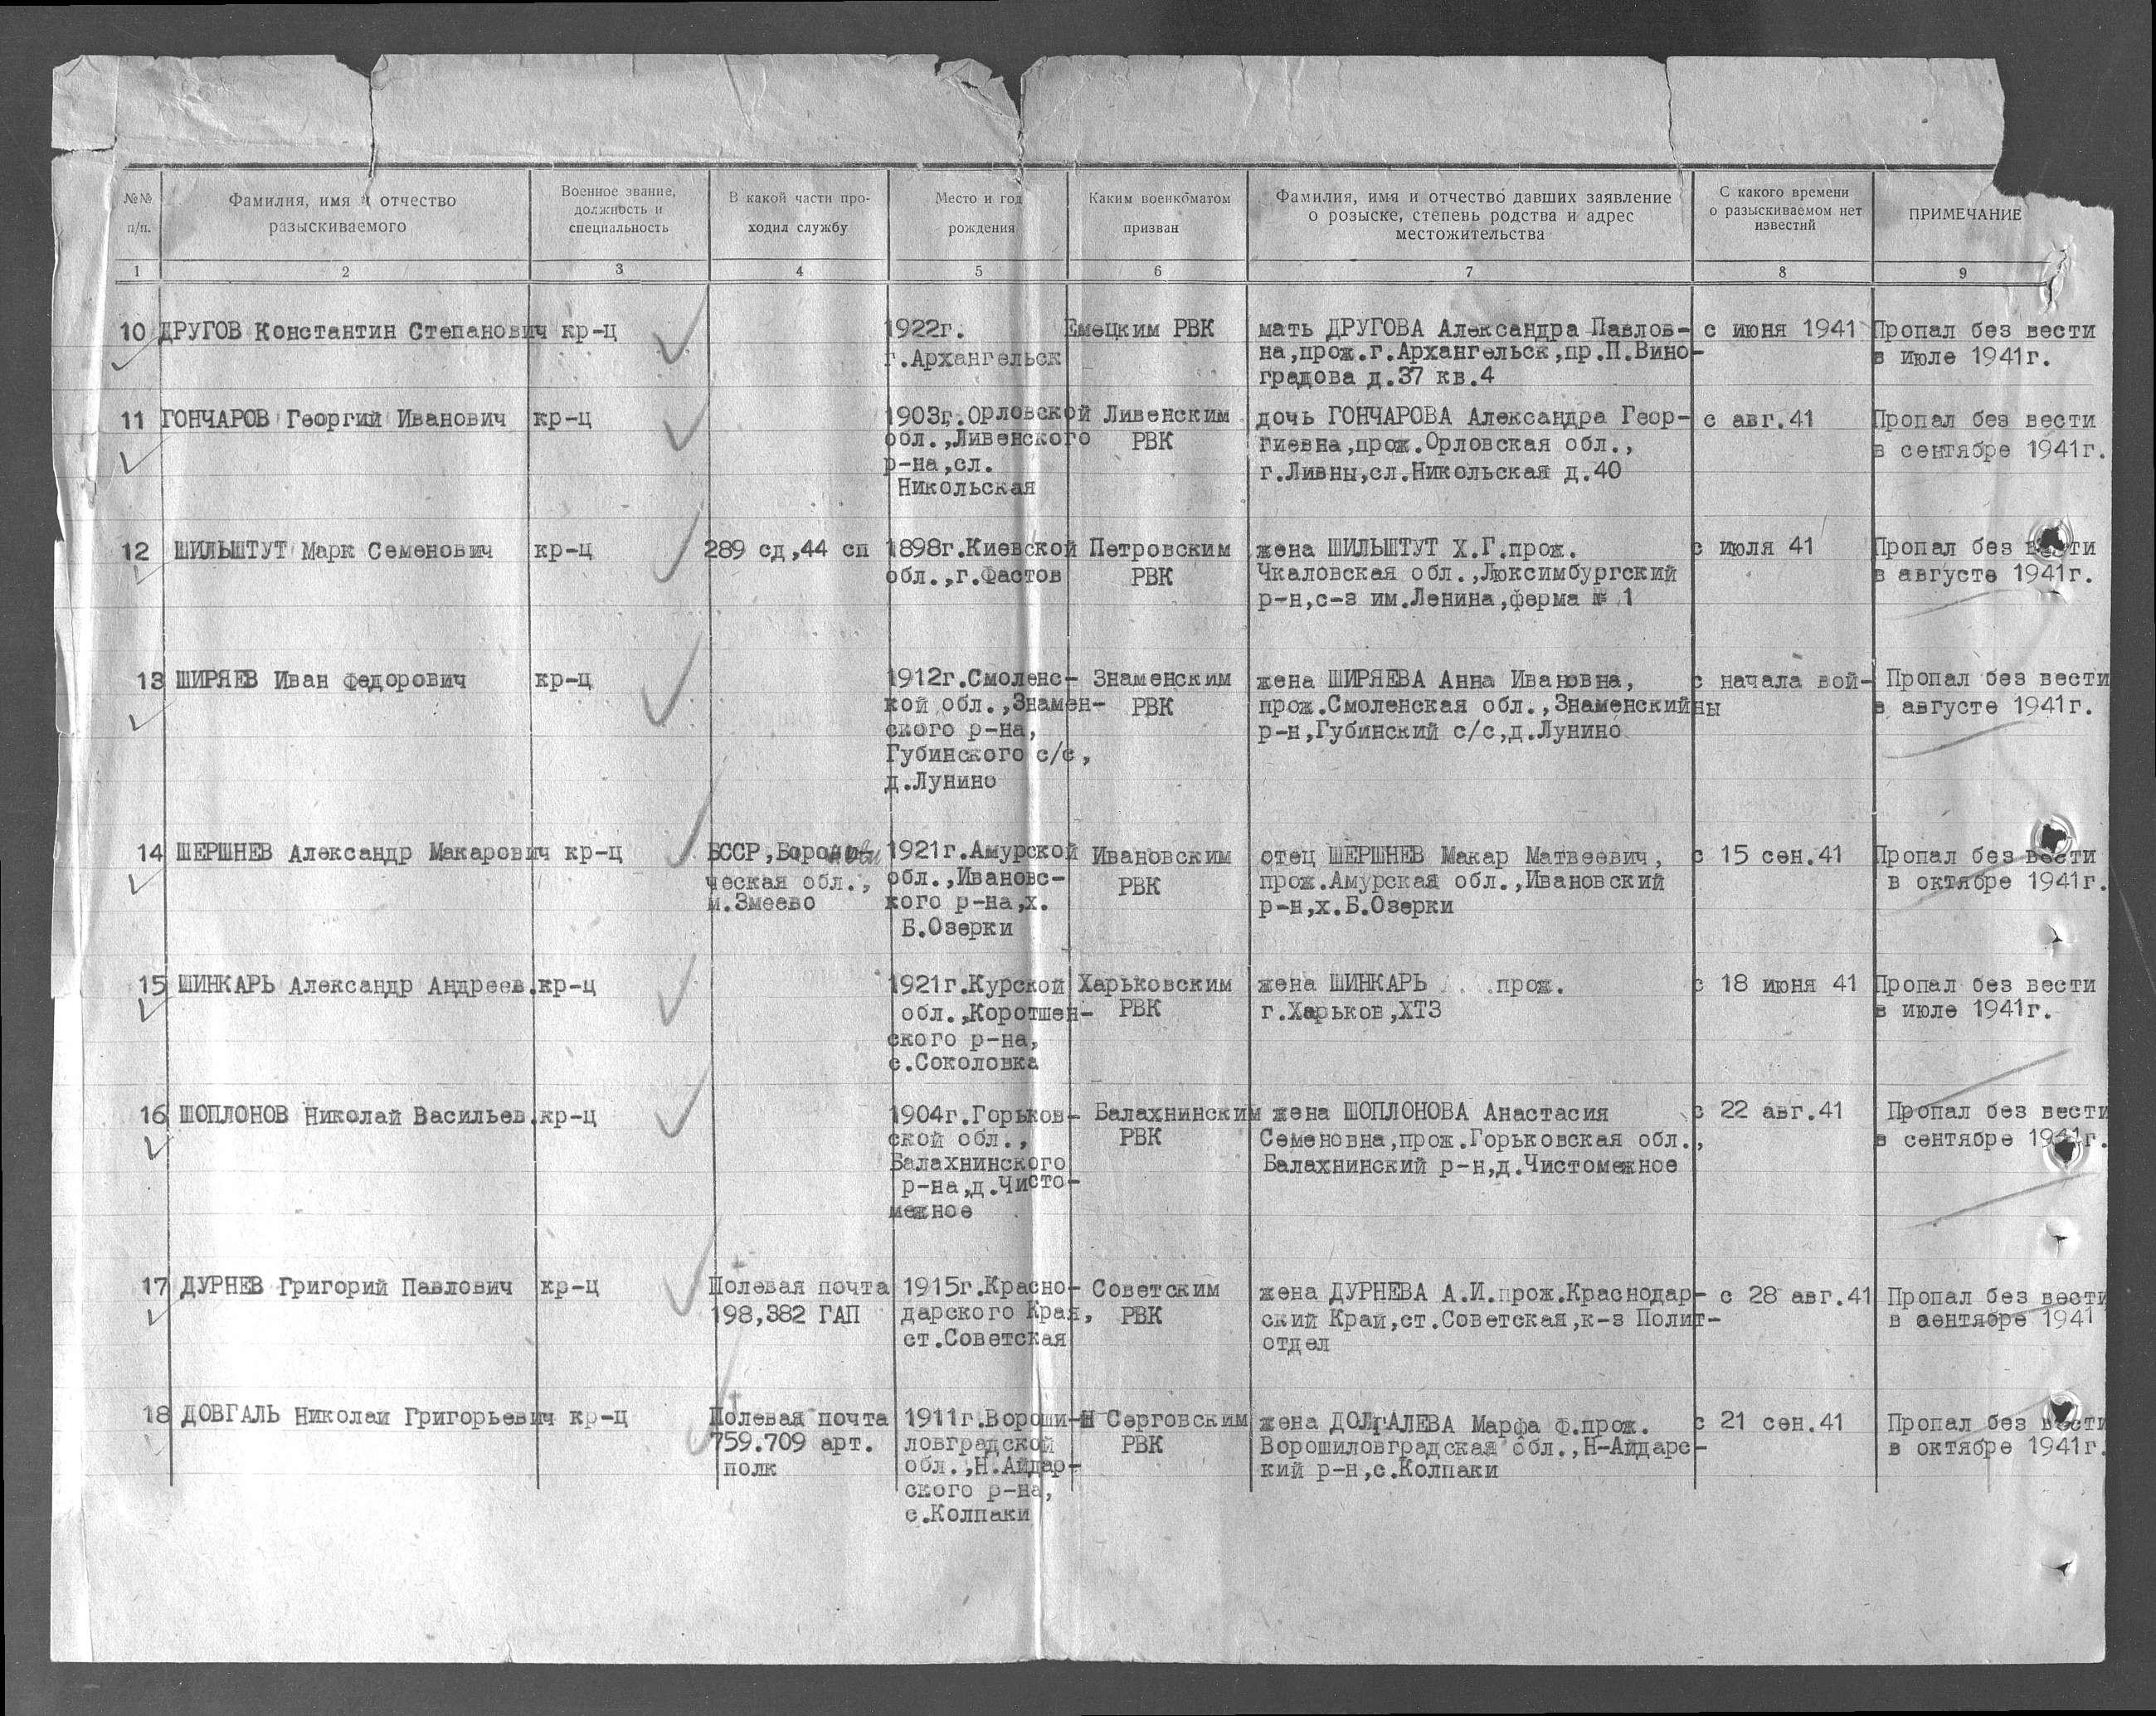 №№ п/п.
Фамилия, имя и отчество
разыскиваемого
Военное звание,
должность и
специальность
В какой части про-
ходил службу
Место и год
рождения
Каким военкоматом
призван
Фамилия, имя и отчество давших заявление
о розыске, степень родства и адрес
местожительства
С какого времени
о разыскиваемом нет
известий
ПРИМЕЧАНИЕ
1 2 3 4 5 6 7 8 9
10 ДРУГОВ Константин Степанович кр-ц
1922г.
г.Архангельск
Емецким РВК
мать ДРУГОВА Александра Павлов-
на,прож.г.Архангельск,пр.П.Вино-
градова д.37 кв.4
с июня 1941
Пропал без вести
в июле 1941г.
11 ГОНЧАРОВ Георгий Иванович кр-ц
1903г.Орловской
обл.,Ливенского
р-на,сл.
Никольская
Ливенским
РВК
дочь ГОНЧАРОВА Александра Геор-
гиевна,прож.Орловская обл.,
г.Ливны,сл.Никольская д.40
с авг.41
Пропал без вести
в сентябре 1941г.
12 ШИЛЬШТУТ Марк Семенович кр-ц
289 сд,44 сп
1898г.Киевской
обл.,г.Фастов
Петровским
РВК
жена ШИЛЬШТУТ Х.Г.прож.
Чкаловская обл.,Люксимбургский
р-н,с-з им.Ленина,ферма № 1
с июля 41
Пропал без вести
в августе 1941г.
13 ШИРЯЕВ Иван Федорович кр-ц
1912г.Смоленс-
кой обл.,Знамен-
ского р-на,
Губинского с/с,
д.Лунино
Знаменским
РВК
жена ШИРЯЕВА Анна Ивановна,
прож.Смоленская обл.,Знаменский
р-н,Губинский с/с,д.Лунино
с начала вой-
ны
Пропал без вести
в августе 1941г.
14 ШЕРШНЕВ Александр Макарович кр-ц
БССР,
ческая обл.,
м.Змеево
1921г.Амурской
обл.,Ивановс-
кого р-на,х.
Б.Озерки
Ивановским
РВК
отец ШЕРШНЕВ Макар Матвеевич,
прож.Амурская обл.,Ивановский
р-н,х.Б.Озерки
с 15 сен.41
Пропал без вести
в октябре 1941г.
15 ШИНКАРЬ Александр Андреев.кр-ц
1921г.Курской
обл.,Коротшен-
ского р-на,
с.Соколовка
Харьковским
РВК
жена ШИНКАРЬ прож.
г.Харьков,ХТЗ
с 18 июня 41
Пропал без вести
в июле 1941г.
16 ШОПЛОНОВ Николай Васильев.кр-ц
1904г.Горьков-
ской обл.,
Балахнинского
р-на,д.Чисто-
межное
Балахнинским
РВК
жена ШОПЛОНОВА Анастасия
Семеновна,прож.Горьковская обл.,
Балахнинский р-н,д.Чистомежное
с 22 авг.41
Пропал без вести
в сентябре 1941г.
17 ДУРНЕВ Григорий Павлович кр-ц
Полевая почта
198,382 ГАП
1915г.Красно-
дарского Края,
ст.Советская
Советским
РВК
жена ДУРНЕВА А.И.прож.Краснодар-
ский Край,ст.Советская,к-з Полит-
отдел
с 28 авг.41
Пропал без вести
в сентябре 1941
18 ДОВГАЛЬ Николай Григорьевич кр-ц
Полевая почта
759.709 арт.
полк
1911г.Вороши-
ловградской
обл.,Н.Айдар-
ского р-на,
с.Колпаки
Н Серговским
РВК
жена ДОЛГАЛЕВА Марфа Ф.прож.
Ворошиловградская обл.,Н-Айдарс-
кий р-н,с.Колпаки
с 21 сен.41
Пропал без вести
в октябре 1941г.